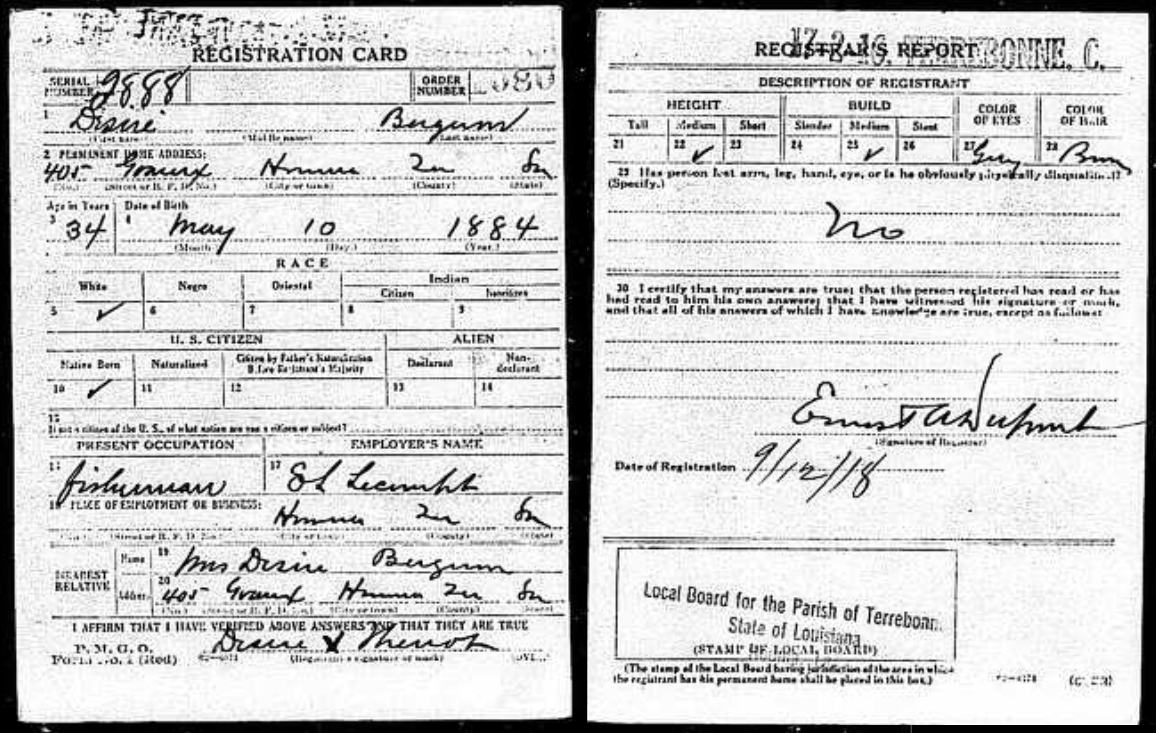 REGISTRATION CARD
SERIAL NUMBER 2888
ORDER NUMBER
1 Desire
(First name) (Middle name) (Last name)
2 PERMANENT HOME ADDRESS:
405 Houma Ter La
(No.) (Street or R. F. D. No.) (City or town) (County) (State)
Age in Years Date of Birth
3 34 4 May 10 1884
(Month) (Day.) (Year.)
RACE
White Negro Oriental Indian
Citizen Noncitizen
5 ✓ 6 7 8 9
U. S. CITIZEN ALIEN
Native Born Naturalized Citizen by Father's Naturalization Before Registrant's Majority Declarant Non-declarant
10 ✓ 11 12 13 14
15
If not a citizen of the U. S., of what nation are you a citizen or subject?
PRESENT OCCUPATION EMPLOYER'S NAME
fisherman 17
PLACE OF EMPLOYMENT OR BUSINESS:
Houma Ter La
(No.) (Street or R. F. D. No.) (City or town) (County) (State)
NEAREST RELATIVE
Name 19 Mrs Desire
Address 20 405 Houma Ter La
(No.) (Street or R. F. D. No.) (City or town) (County) (State)
I AFFIRM THAT I HAVE VERIFIED ABOVE ANSWERS AND THAT THEY ARE TRUE
P. M. G. O.
Form No. 1 (Red) Desire X
(Registrant's signature or mark) (OVER)
REGISTRAR'S REPORT
17-2-16. TERREBONNE. C.
DESCRIPTION OF REGISTRANT
HEIGHT BUILD COLOR OF EYES COLOR OF HAIR
Tall Medium Short Slender Medium Stout
21 22 ✓ 23 24 25 ✓ 26 27 Grey 28
29 Has person lost arm, leg, hand, eye, or is he obviously physically disqualified?
(Specify.)
No
30 I certify that my answers are true; that the person registered has read or has
had read to him his own answers; that I have witnessed his signature or mark,
and that all of his answers of which I have knowledge are true, except as follows:
Ernest A Dupont
(Signature of Registrar)
Date of Registration 9/12/18
Local Board for the Parish of Terrebonne
State of Louisiana
(STAMP OF LOCAL BOARD)
(The stamp of the Local Board having jurisdiction of the area in which
the registrant has his permanent home shall be placed in this box.)